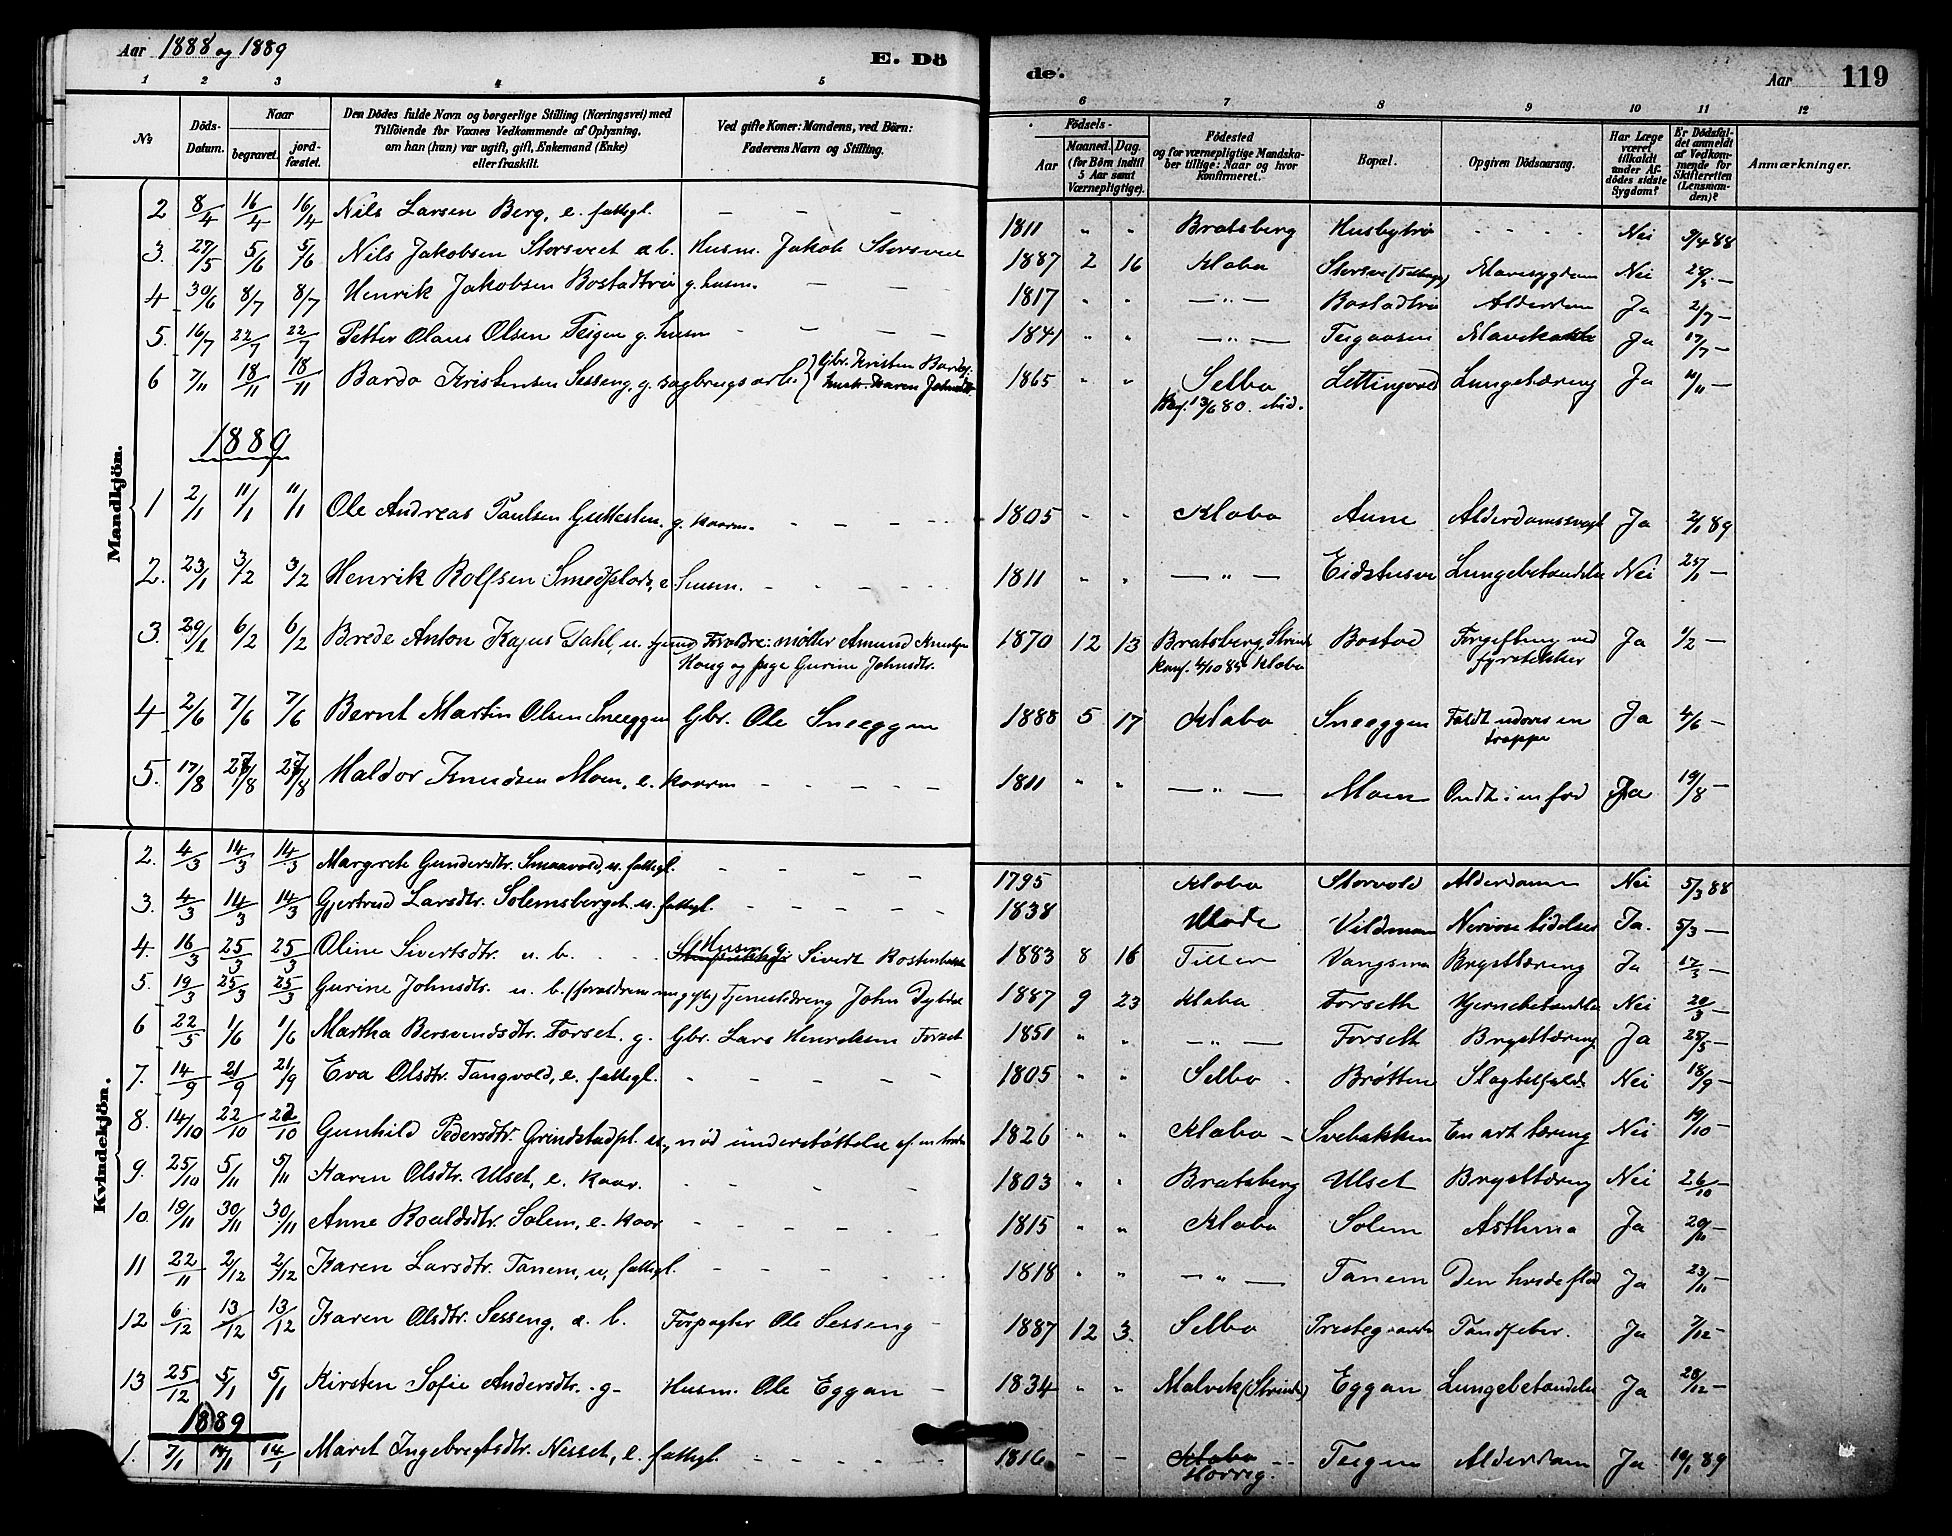 Aar 1888 og 1889
E. Dö
de.
Aar
119
1 2 3 4 5 6 7 8 9 10 11 12
No
Döds-Datum.
Naar
begravet.
jord-fæstet.
Den Dödes fulde Navn og borgerlige Stilling (Næringsvei) med
Tilföiende for Voxnes Vedkommende af Oplysning,
om han (hun) var ugift, gift, Enkemand (Enke)
eller fraskilt.
Ved gifte Koner: Mandens, ved Börn:
Faderens Navn og Stilling.
Födsels-
Aar
Maaned. Dag.
(for Börn indtil
5 Aar samt
Værnepligtige).
Födested
og for værnepligtige Mandska-
ber tillige: Naar og hvor
konfirmeret.
Bopæl.
Opgiven Dödsaarsag.
Har Læge
været
tilkaldt
under Af-
dödes sidste
Sygdom?
Er Dödsfal-
det anmeldt
af Vedkom-
mende for
Skifteretten
(Lensman-
den)?
Anmærkninger.
Mandkjön.
2 8/4 16/4 16/4 Nils Larsen Berg, e. fattigl. – – – 1811 " " Bratsberg Husbytrø - - - - Nei 9/4 88
3. 27/5 5/6 5/6 Nils Jakobsen Storsveet u. b. Husm. Jakob Storsveet 1887 2 16 Klæbo Mavesygdom Nei 28/5 –
4 30/6 8/7 8/7 Henrik Jakobsen Bostadtrø g. husm. – – 1817 " " – " – Bostadtrø Alderdom Ja 2/7 –
5. 16/7 22/7 22/7 Petter Olaus Olsen Teigen g. husm – – – 1841 " " – " – Teigaasen Ja 17/7 –
6 7/11 18/11 18/11 Bardo Kristensen Sesseng, g. sagbrugsarb. Gbr. Kristen Bardos.
hustr. Karen Johnsdtr. 1865 " " Selbo Lettingvold Lungetæring Ja 10/11 –
13/6 80. ibid.
1889
1 2/1 11/1 11/1 Ole Andreas Paulsen g. kaarm. – – – – 1805 " " Klæbo Aune Alderdomssvagh. Ja 2/1 89
2. 23/1 3/2 3/2 Henrik Rolfsen Smedplads, e. husm. – – – – 1811 " " – " – Eidstuen Lungebetændelse Nei 25/1 –
3. 29/1 6/2 6/2 Brede Anton Kajus Dahl, u. Forældre: møller Amund Knudsen
Haug og pige Gurine Johnsdtr. 1870 12 13 Bratsberg, Strinde Bostad Forgiftning ved Ja 1/2 –
konf. 4/10 85 Klæbo fyrstikker
4 2/6 7/6 7/6 Bernt Martin Olsen Sneeggen Gbr. Ole Sneeggen 1888 5 17 Klæbo Sneeggen Faldt udover en Ja 4/6 –
trappe
5. 17/8 27/8 27/8 Haldor Knudsen Moen, e. kaarm – – – – 1811 " " – " – Moen Ondt i en fod Ja 19/8 –
Kvindekjön.
2. 4/3 14/3 14/3 Margrete Gundersdtr. Smaavold, u. fattigl. – – – – 1795 Klæbo Storvold Alderdom Nei 5/3 88
3. 4/3 14/3 14/3 Gjertrud Larsdtr. Solemsberget. u. fattigl. – – – – – 1838 Vildmoen Nervøse lidelser Ja. 5/3 –
4. 16/3 25/3 25/3 Oline Sivertsdtr. u. b. - - Husm. g. Sivert 1883 8 16 Tiller Vangsmo Brysttæring Ja 17/3 –
5. 19/3 25/3 25/3 Gurine Johnsdtr. u. b. (forældrene ugifte) Tjenestedreng John 1887 9 23 Klæbo Forseth Hjernebetændelse Nei 20/3 –
6 22/5 1/6 1/6 Martha Bersvendsdtr. Forset. g. Gbr. Lars Henriksen Forset 1851 " " – " – Forseth Brysttæring Ja 25/5 –
7. 14/9 21/9 21/9 Eva Olsdtr. Tangvold, e. fattigl. – – – – – 1805 " " Selbo - Brøtten Slagtilfælde Nei 18/9 –
8. 14/10 22/10 22/10 Gunhild Pedersdtr. Grindstadpl. u., nød understøttelse af 1826 " " Klæbo – Svebakken En art tæring Nei 19/10 –
9. 25/10 5/11 5/11 Karen Olsdtr. Ulset, e. kaar. – – – – 1803 " " Bratsberg Ulset Brysttæring Nei 26/10 –
10. 19/11 30/11 30/11 Anne Roaldsdtr. Solem, e. kaar – – – – – 1815 " " Klæbo Solem Asthma Ja 20/11 –
11 22/11 2/12 2/12 Karen Larsdtr. Tanem, u. fattigl. – – – – 1818 " " – " – Tanem Den hvide flod Ja 23/11 –
12 6/12 13/12 13/12 Karen Olsdtr. Sesseng, u. b. Forpagter Ole Sesseng – 1887 12 3. Selbo Tandfeber. Ja 7/12 –
13 25/12 5/1 5/1 Kirsten Sofie Andersdtr. g– Husm. Ole Eggan – 1834 " " Malvik (Strinde) Eggan Lungebetændelse Ja 28/12 –
1889
1. 7/1 14/1 14/1 Maret Ingebrigtsdtr. Nesset, e. fattigl. – – – – – 1816 – – Klæbo
Horrig. Teigen Alderdom Ja 10/1 89